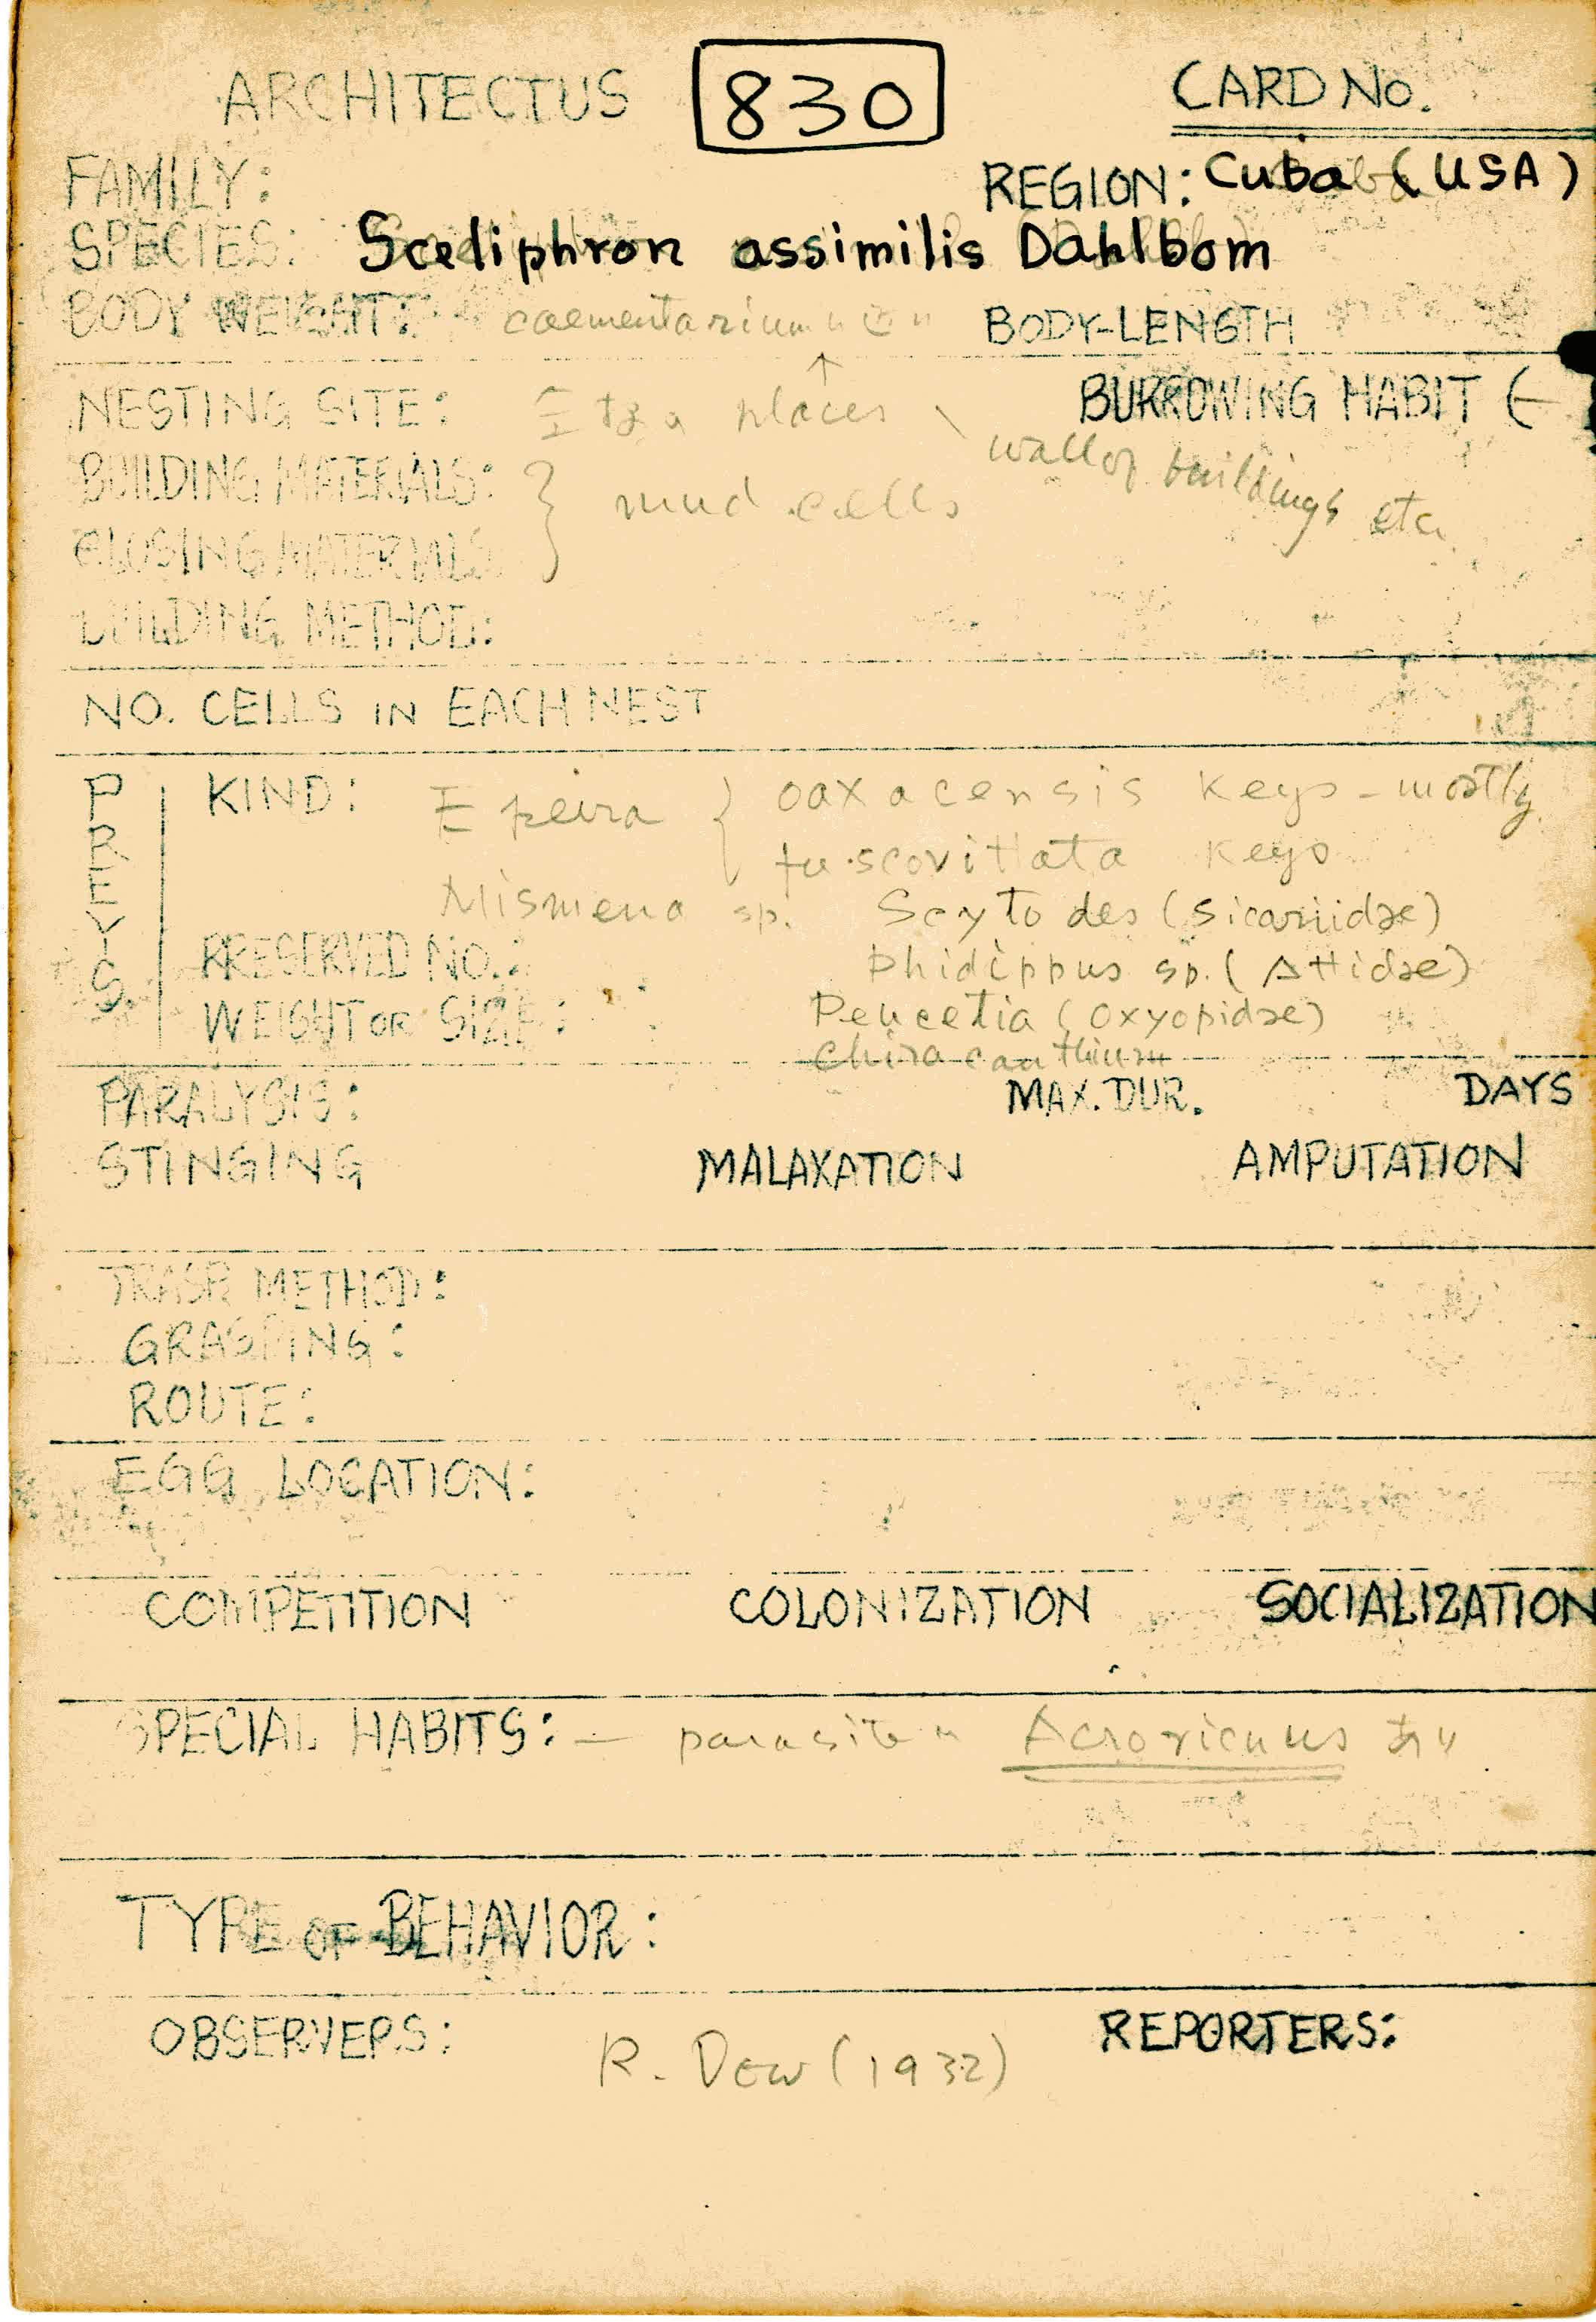 ARCHITECTUS 830 CARD NO.
FAMILY: REGION: Cuba (USA)
SPECIES: Sceliphron assimilis Dahlbom
BODY WEIGHT: caementarium BODY-LENGTH
↑
NESTING SITE: places BURROWING HABIT (
wall of buildings etc.
BUILDING MATERIALS: } mud cells
CLOSING MATERIALS
BUILDING METHOD:
NO. CELLS IN EACH NEST
PREYS. KIND: Epeira { oaxacensis Keys - mostly
fuscovittata Keys
Mismena sp. Scytodes (Sicariidae)
PRESERVED NO.: Phidippus sp. (Attidae)
WEIGHT OR SIZE: Peucetia (Oxyopidae)
Chiracanthium
PARALYSIS: MAX. DUR. DAYS
STINGING MALAXATION AMPUTATION
TRASP. METHOD:
GRASPING:
ROUTE:
EGG LOCATION:
COMPETITION COLONIZATION SOCIALIZATION
SPECIAL HABITS: — parasite
TYPE OF BEHAVIOR:
OBSERVERS: R. Dow (1932) REPORTERS: